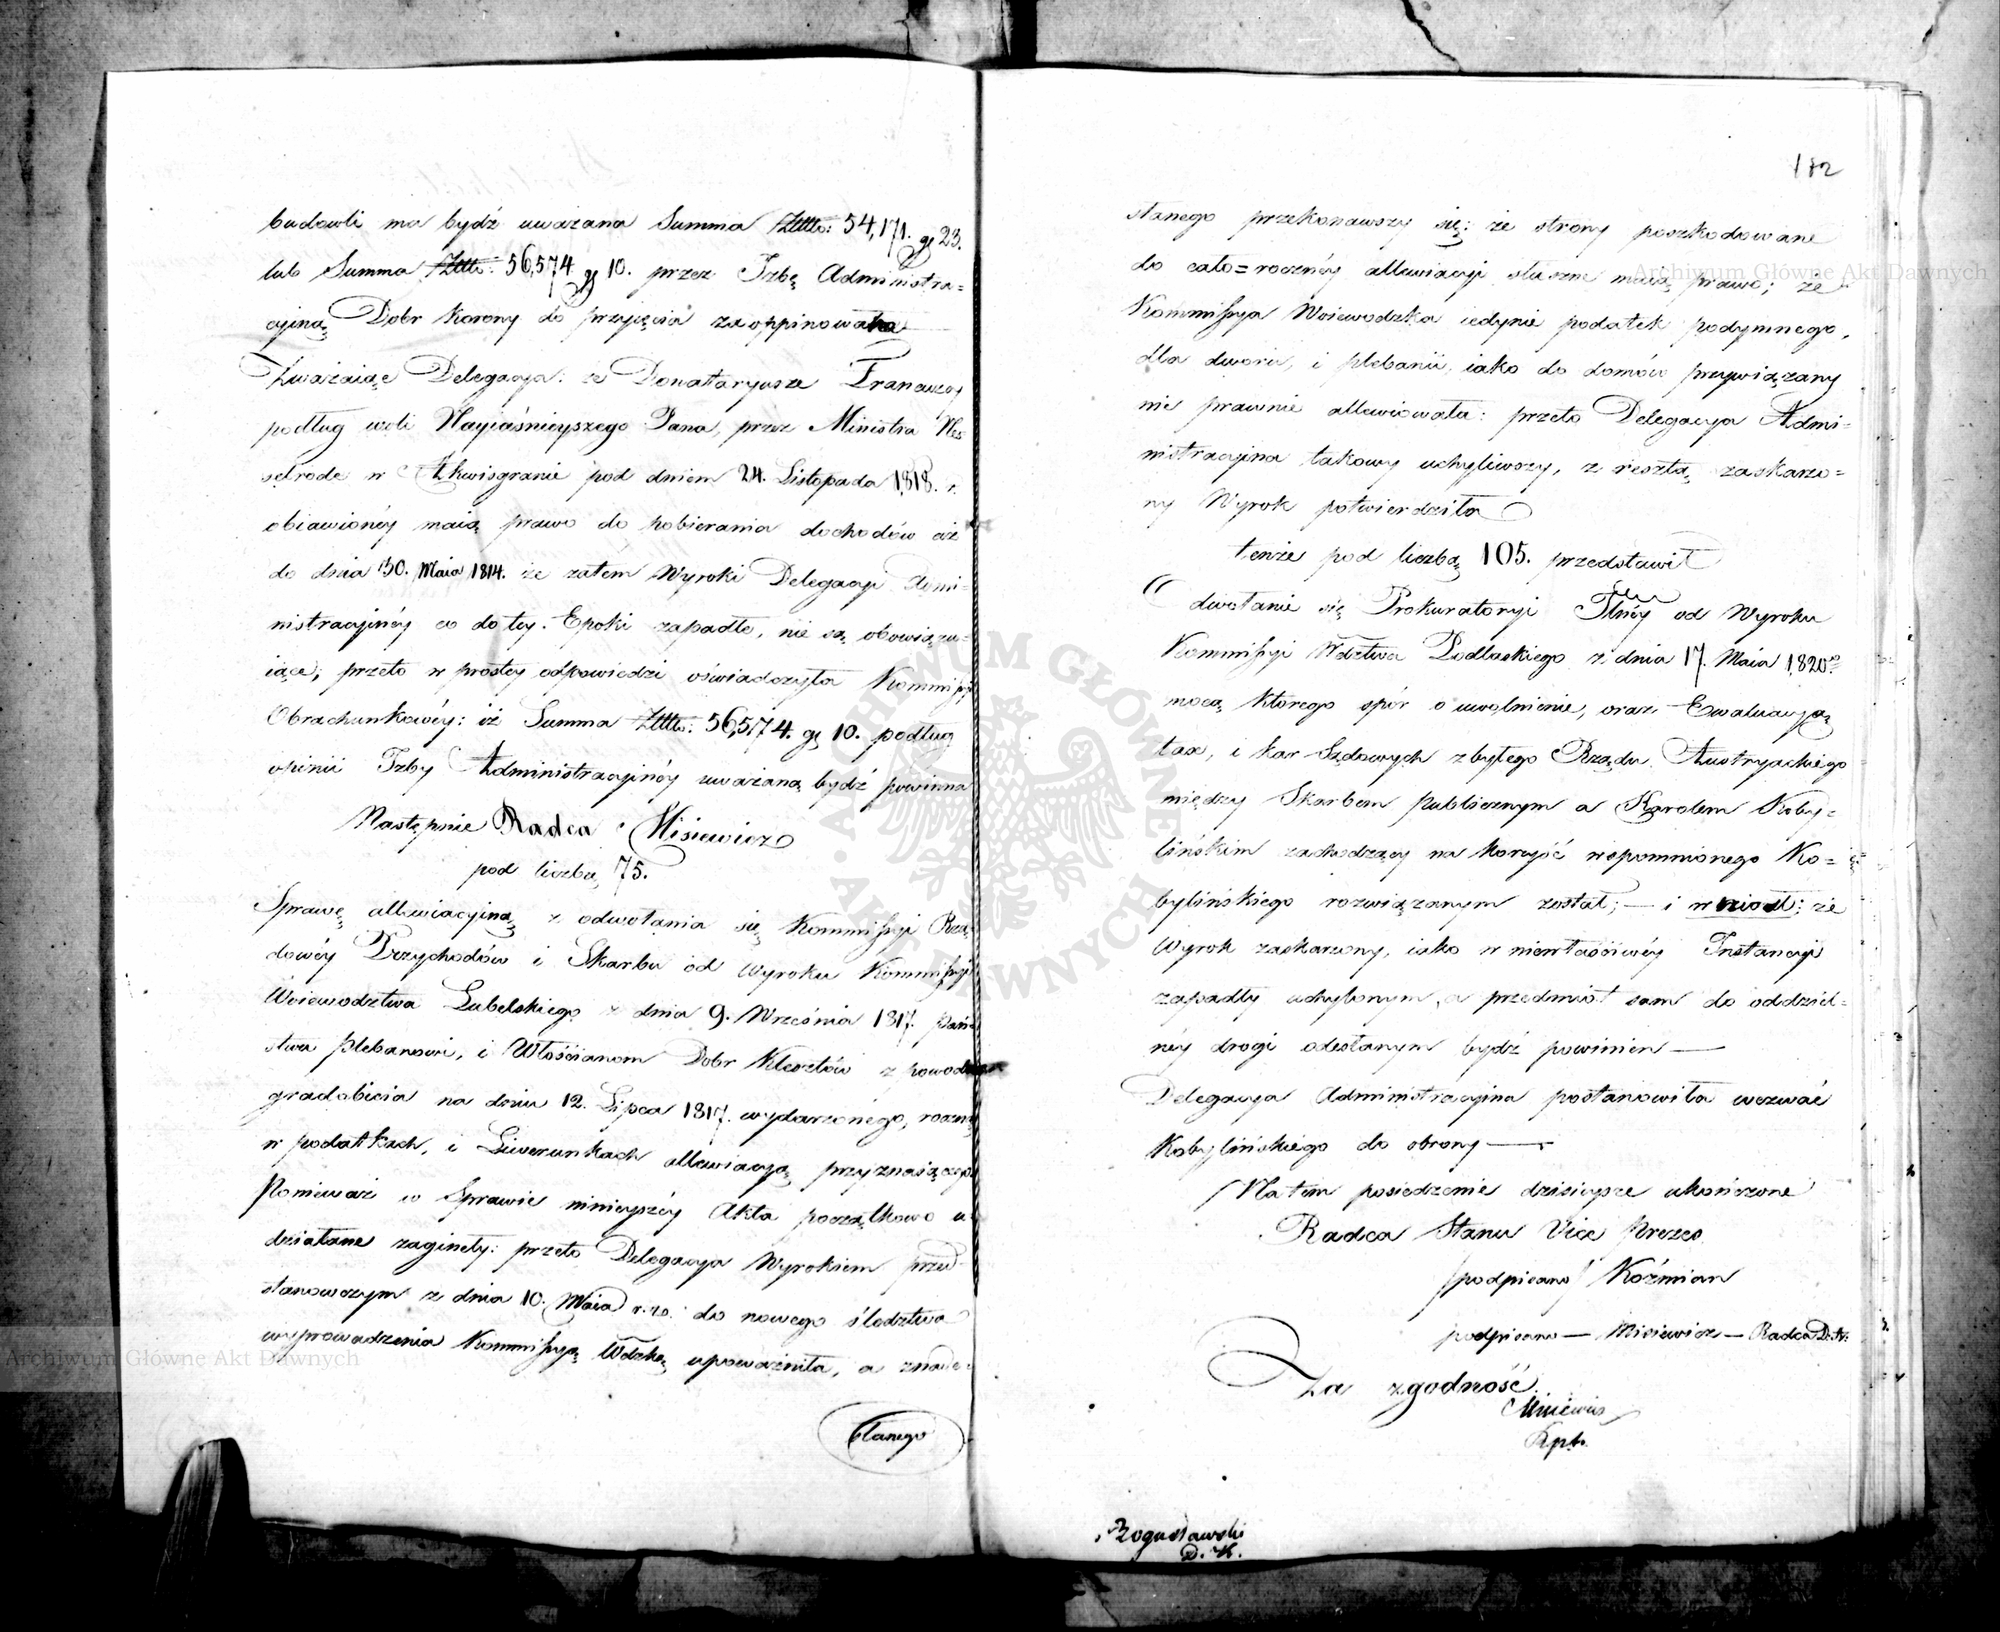 budowli ma bydź uważana Summa Zlltt: 54,171. gr 23.
lub Summa Zlltt: 56,574 gr 10. przez Izbę Administra=
cyiną Dobr Korony do przyięcia zaoppinowana
Zważaiąc Delegacya: że Donataryusze Francuzcy
podług woli Nayiaśnieyszego Pana, przez Ministra Nes
selrode w Akwisgranie pod dniem 24. Listopada 1818. r.
obiawionéy maią prawo do pobierania dochodów aż
do dnia 30. Maia 1814. że zatém Wyroki Delegacyi Admi=
nistracyinéy co do tey Epoki zapadłe, nie są obowiązu=
iące; przeto w prostey odpowiedzi oświadczyła Kommissyi
Obrachunkowéy: iż Summa Zlltt: 56,574. gr 10. podług
opinii Izby Administracyinéy uważaną bydź powinna
Następnie Radca Misiewicz
pod liczbą 75.
Sprawę allewiacyiną z odwołania się Kommissyi Rzą
dowéy Przychodów i Skarbu od Wyroku Kommissyi
Woiewodztwa Lubelskiego z dnia 9. Września 1817. Pań
stwu plebanowi, i Włościanom Dobr Klesztów z powodu
gradobicia na dniu 12. Lipca 1817. wydarzonego, roczną
w podatkach, i Liwerunkach allewiacyą przyznaiącego
Ponieważ w Sprawie ninieyszéy Akta początkowo u
działane zaginęły: przeto Delegacya Wyrokiem przed
stanowczym z dnia 10. Maia r. z. do nowego śledztwa
wyprowadzenia Kommissyą Wdzką upoważniła, a znade
słanego
182
słanego przekonawszy się: że strony poszkodowane
do cało=rocznéy allewiacyi słuszne maią prawo; że
Kommissya Woiewodzka iedynie podatek podymnego,
dla dworu, i plebanii iako do domów przywiązany
nie prawnie allewiowała: przeto Delegacya Admi=
nistracyina takowy uchyliwszy, z resztą zaskarżo=
ny Wyrok potwierdziła
tenże pod liczbą 105. przedstawił
Odwołanie się Prokuratoryi Jlnéy od Wyroku
Kommissyi Wdztwa Podlaskiego z dnia 17. Maia 1820.
mocą którego spór o uwolnienie, oraz Ewaluacyą
tax, i kar Sądowych z byłego Rządu Austryackiego
między Skarbem publicznym a Karolem Koby=
lińskim zachodzący na korzyść wspomnionego Ko=
bylińskiego rozwiązanym został; — i wniosł: że
Wyrok zaskarżony, iako w niewłaściwéy Instancyi
zapadły uchylonym, a przedmiot sam do oddziel=
néy drogi odesłanym bydź powinien —
Delegacya Administracyina postanowiła wezwać
Kobylińskiego do obrony —
Na tem posiedzenie dzisieysze ukończone
Radca Stanu Vice Prezes
/podpisano/ Koźmian
podpisano — Misiewicz — Radca D. A.
Za zgodność
Misiewicz
Bogusławski
D. K.
Archiwum Główne Akt Dawnych
Archiwum Główne Akt Dawnych
ARCHIWUM GŁÓWNE AKT DAWNYCH